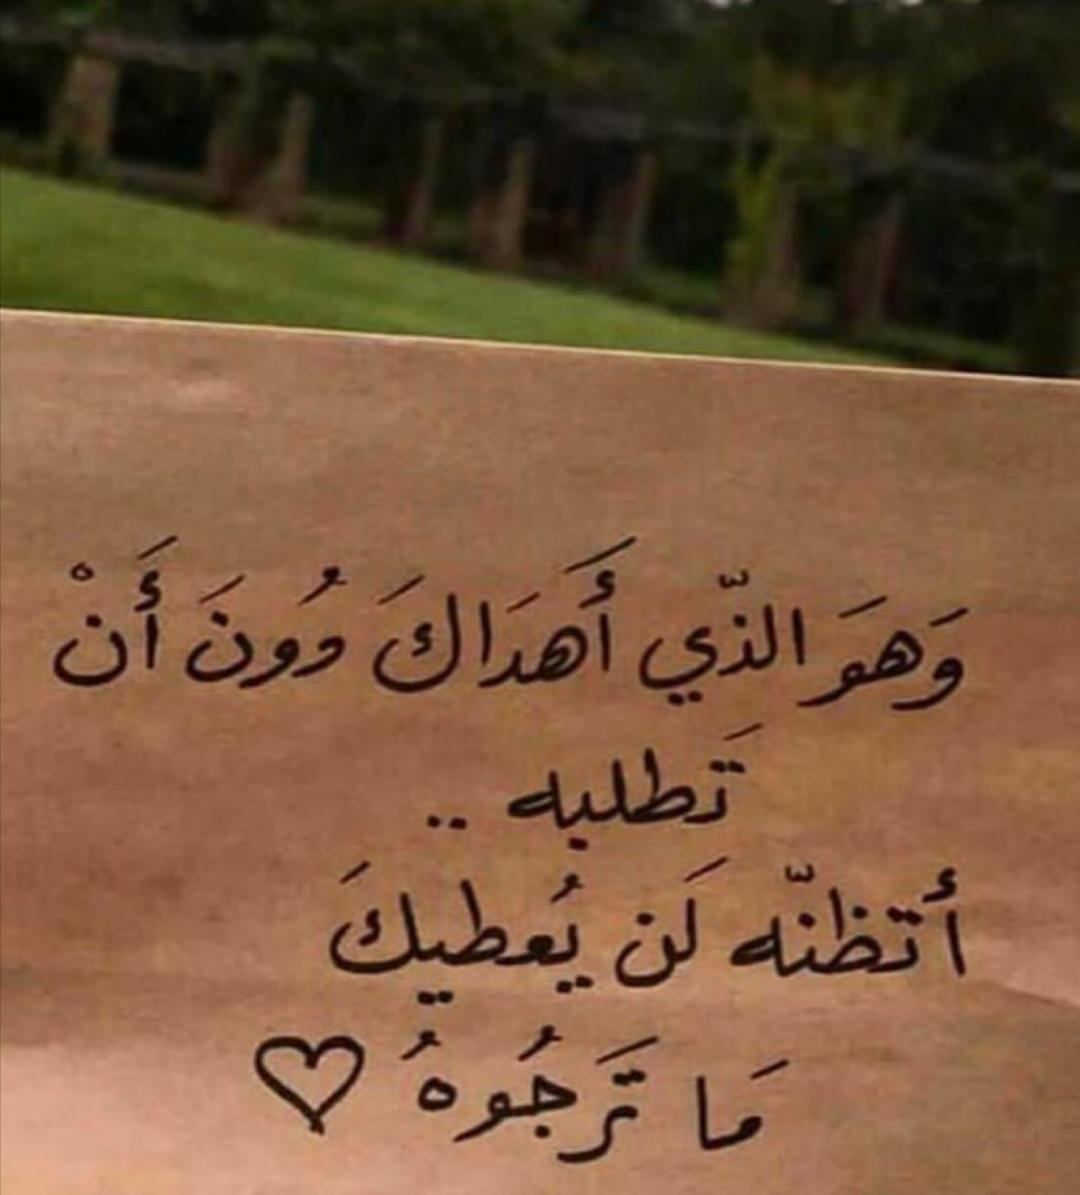 وَهَوَ الذّي أَهدَاكَ دُونَ أَنْ
تَطلبه ..
أتظنّه لَن يُعطيكَ
مَا تَرجُوهُ ♡